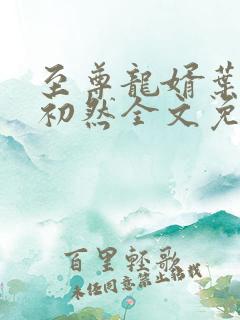 至尊龍婿葉
初然全文免
百里輕歌
未经同意禁止转载